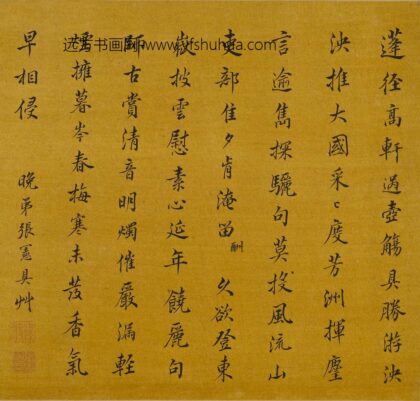 蓬径高軒過壺觴具勝游泱
泱推大國采〻度芳洲揮麈
言逾雋探驪句莫投風流山
吏部佳夕肯淹留酬 久欲登東
嶽披雲慰素心延年饒麗句
師古賞清音明燭催嚴漏輕
擁暮岑春梅寒未發香氣
早相侵 晚弟張具艸
书画网 www.yfshuhua.com